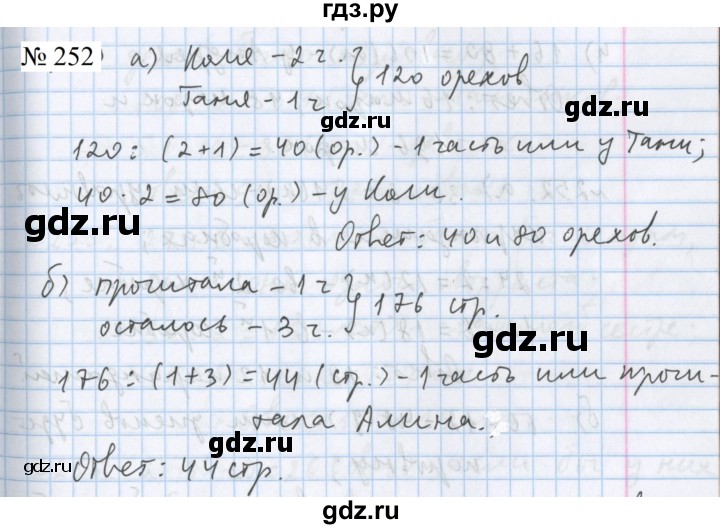 гдз.ру
№ 252 а) Коля - 2 ч. } 120 орехов
Таня - 1 ч
gdz.ru
120 : (2+1) = 40 (ор.) - 1 часть или у Тани;
40 · 2 = 80 (ор.) - у Коли.
gdz.ru
gdz.ru
Ответ: 40 и 80 орехов.
б) прочитала - 1 ч } 176 стр.
осталось - 3 ч.
gdz.ru
176 : (1+3) = 44 (стр.) - 1 часть или прочи-
тала Алина.
gdz.ru
gdz.ru
Ответ: 44 стр.
gdz.ru